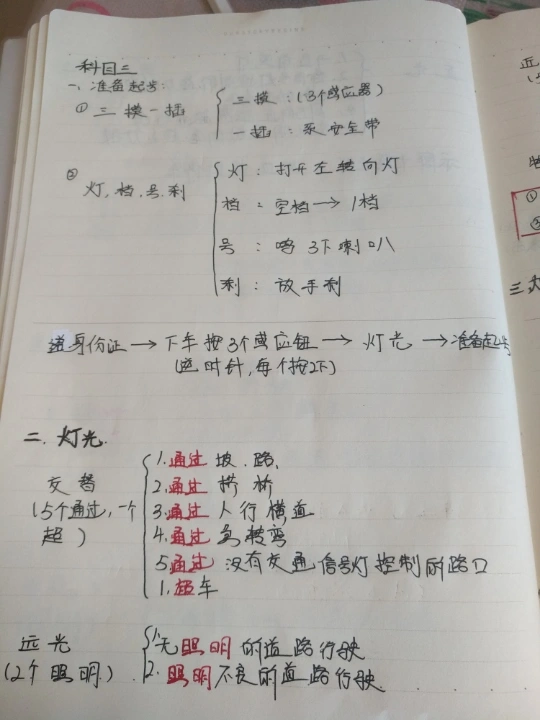 科目三
一、准备起步:
① 三摸一插 三摸:(3个感应器)
一插:系安全带
② 灯、档、号、刹 灯:打开左转向灯
档:空档→1档
号:鸣3下喇叭
刹:放手刹
递身份证→下车按3个感应钮→灯光→准备起步
(逆时针,每个按2下)
二.灯光.
交替
(5个通过,一个超)
1.通过 坡.路.
2.通过 拱桥
3.通过 人行横道
4.通过 急转弯
5.通过 没有交通信号灯控制的路口
1.超车
远光
(2个照明).
1.无照明的道路行驶
2.照明不良的道路行驶
近
①
三.